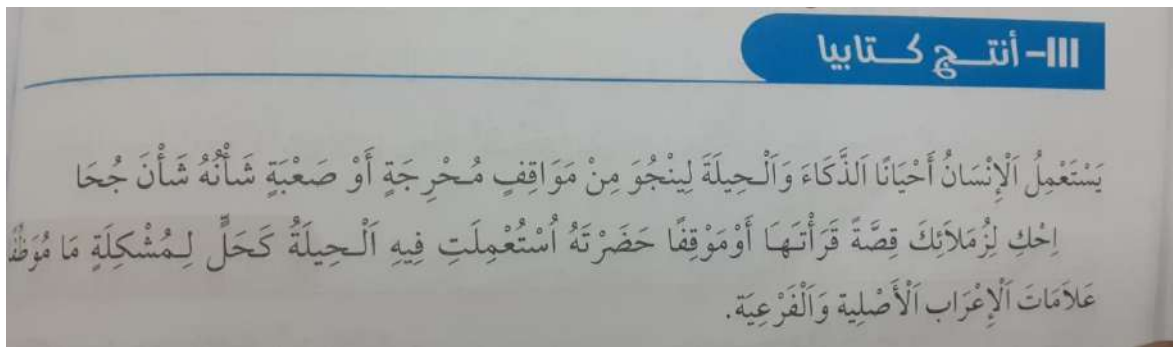 III- أنتج كتابيا
يَسْتَعْمِلُ اَلْإِنْسَانُ أَحْيَانًا اَلذَّكَاءَ وَاَلْحِيلَةَ لِيَنْجُوَ مِنْ مَوَاقِفٍ مُحْرِجَةٍ أَوْ صَعْبَةٍ شَأْنُهُ شَأْنَ جُحَا
اِحْكِ لِزُمَلَائِكَ قِصَّةً قَرَأْتَهَا أَوْ مَوْقِفًا حَضَرْتَهُ اُسْتُعْمِلَتِ فِيهِ اَلْحِيلَةُ كَحَلٍّ لِمُشْكِلَةٍ مَا مُوَظِّفًا
عَلَامَاتَ اَلْإِعْرَاب اَلْأَصْلِية وَاَلْفَرْعِيَة.